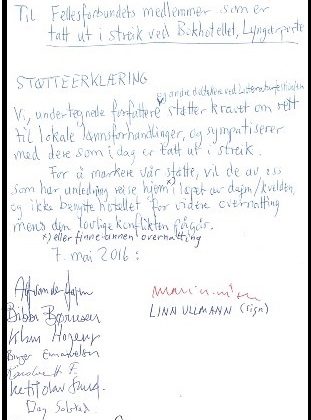 Til Fellesforbundets medlemmer som er
tatt ut i streik ved Bokhotellet, Lyngørporten
STØTTEERKLÆRING
og andre deltakere ved Litteraturfestivalen
Vi, undertegnede forfattere støtter kravet om rett
til lokale lønnsforhandlinger, og sympatiserer
med dere som i dag er tatt ut i streik.
For å markere vår støtte, vil de av oss
som har anledning reise hjem x) i løpet av dagen/kvelden,
og ikke benytte hotellet for videre overnatting
mens den lovlige konflikten pågår.
x) eller finne annen overnatting
7. mai 2016:
Bibbi Børresen
LINN ULLMANN (sign)
Klaus Hagerup
Birger Emanuelsen
Ketil Olav
Dag Solstad